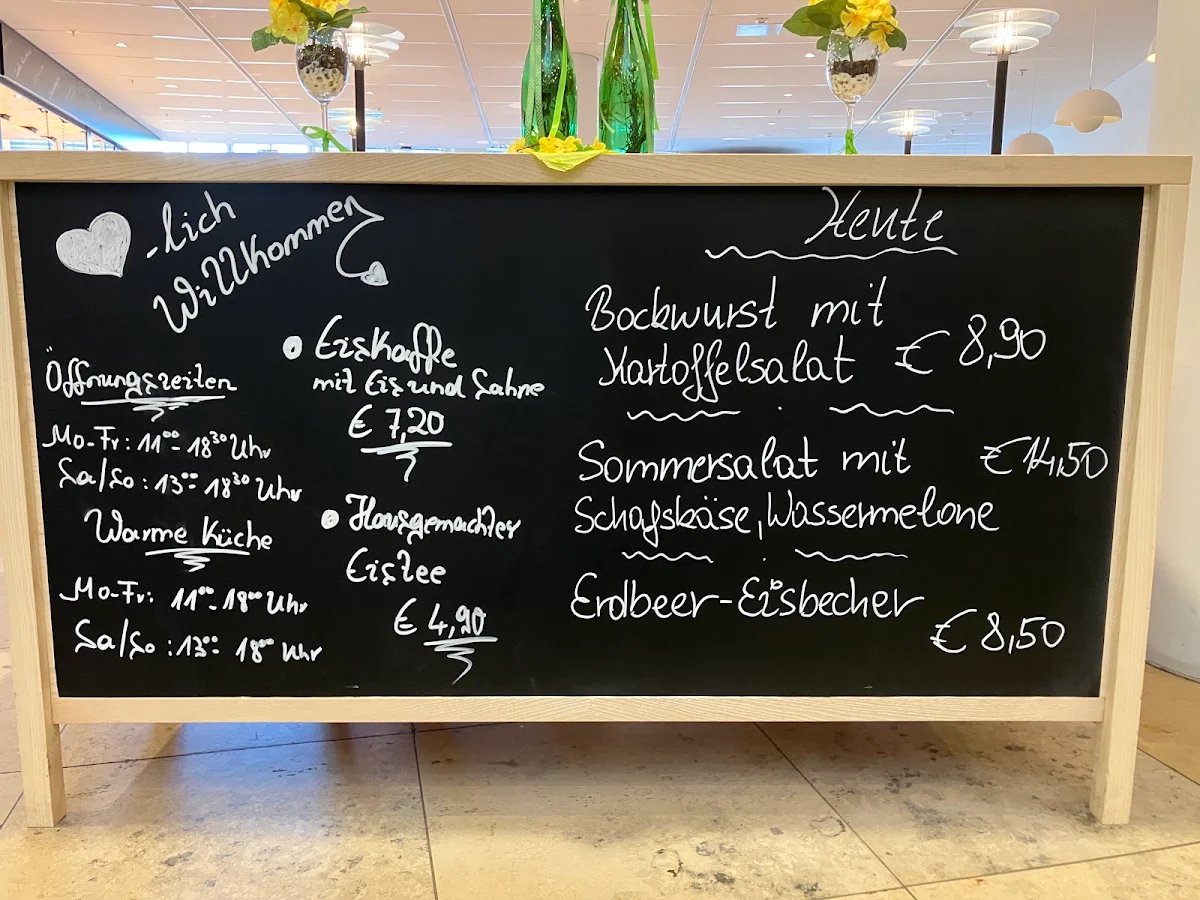 -lich
Willkommen
Öffnungszeiten
Mo-Fr: 11⁰⁰-18³⁰ Uhr
Sa/So: 13⁰⁰- 18³⁰ Uhr
Warme Küche
Mo-Fr: 11⁰⁰-18⁰⁰ Uhr
Sa/So: 13⁰⁰- 18⁰⁰ Uhr
• Eiskaffe
mit Eis und Sahne
€ 7,20
• Hausgemachter
Eistee
€ 4,90
Heute
Bockwurst mit
Kartoffelsalat € 8,90
Sommersalat mit € 14,50
Schafskäse, Wassermelone
Erdbeer-Eisbecher
€ 8,50